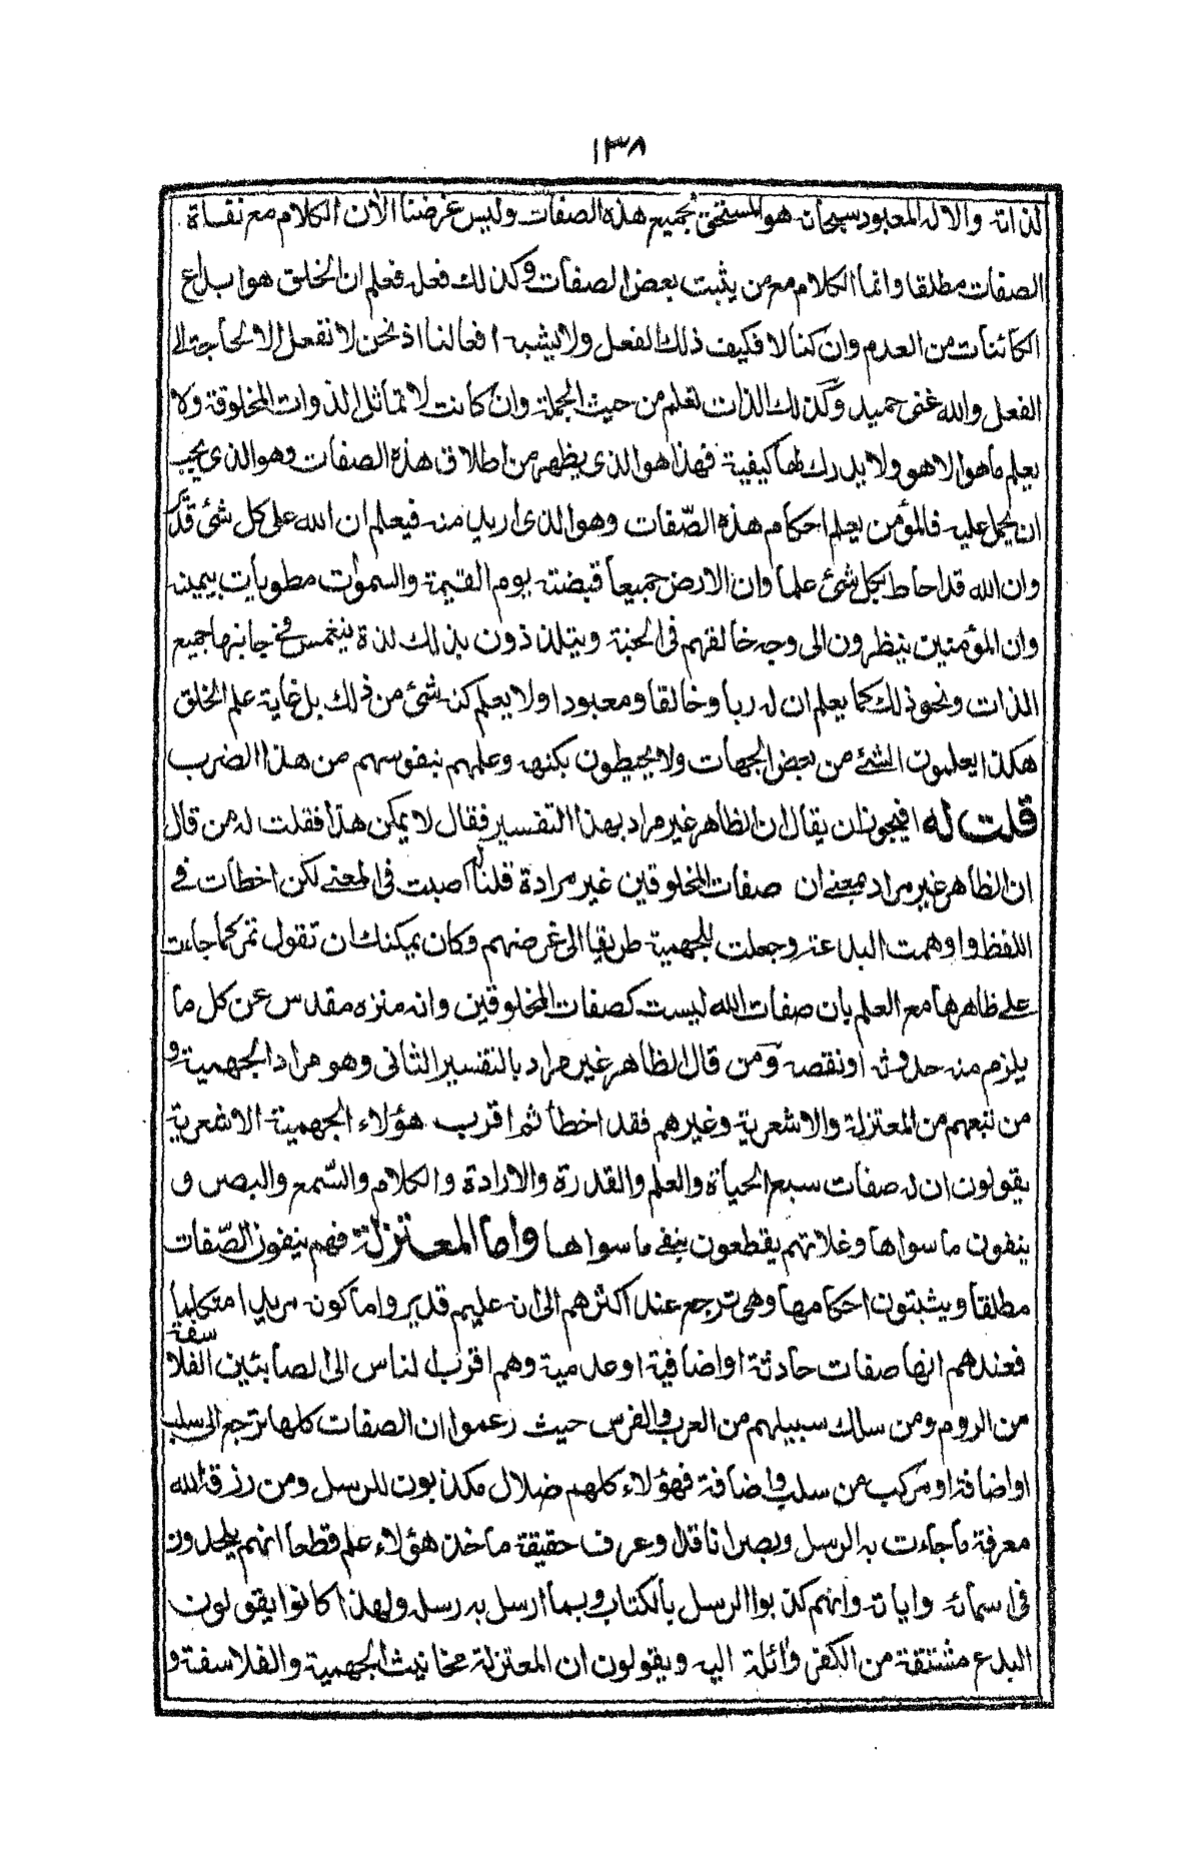 ١٣٨
لذاته والاله المعبود سبحانه هو المستحق لجميع هذه الصفات وليس غرضنا الان الكلام مع نفاة
الصفات مطلقا وانما الكلام مع من يثبت بعض الصفات وكذلك فعله فعلم ان الخلق هو ابداع
الكائنات من العدم وان كنا لا فكيف ذلك الفعل ولا يشبه افعالنا اذ نحن لا نفعل الا لحاجة الى
الفعل والله غنى حميد وكذلك الذات تعلم من حيث الجملة وان كانت لا تماثل الذوات المخلوقة ولا
يعلم ما هو الا هو ولا يدرك لها كيفية فهذا هو الذى يظهر من اطلاق هذه الصفات وهو الذى يجب
ان يحمل عليه فالمؤمن يعلم احكام هذه الصّفات وهو الذى اريد منه فيعلم ان الله على كل شئ قدير
وان الله قد احاط بكل شئ علما وان الارض جميعا قبضته يوم القيمة والسموٰت مطويات بيمينه
وان المؤمنين ينظرون الى وجه خالقهم فى الجنة ويتلذذون بذلك لذة ينغمس فى جانبها جميع
اللذات ونحو ذلك كما يعلم ان له ربا وخالقا ومعبودا ولا يعلم كنه شئ من ذلك بل غاية علم الخلق
هكذا يعلمون الشئ من بعض الجهات ولا يحيطون بكنهه وعلمهم بنفوسهم من هذا الضرب
قلت له افيجوز ان يقال ان الظاهر غير مراد بهذا التفسير فقال لا يمكن هذا فقلت له من قال
ان الظاهر غير مراد بمعنى ان صفات المخلوقين غير مرادة قلنا له اصبت فى المعنى لكن اخطأت فى
اللفظ واوهمت البدعة وجعلت للجهمية طريقا الى غرضهم وكان يمكنك ان تقول تمر كما جاءت
على ظاهرها مع العلم بان صفات الله ليست كصفات المخلوقين وانه منزه مقدس عن كل ما
يلزم منه حدوثه اونقصه ومن قال الظاهر غير مراد بالتفسير الثانى وهو مراد الجهمية و
من تبعهم من المعتزلة والاشعرية وغيرهم فقد اخطأ ثم اقرب هؤلاء الجهمية الاشعرية
يقولون ان له صفات سبع الحياة والعلم والقدرة والارادة والكلام والسّمع والبصر و
ينفون ما سواها وغلاتهم يقطعون بنفى ما سواها واما المعتزلة فهم ينفون الصّفات
مطلقا ويثبتون احكامها وهى ترجع عند اكثرهم الى انه عليم قدير واما كونه مريدا متكلما
فعندهم انها صفات حادثة او اضافية او عدمية وهم اقرب الناس الى الصابئين الفلاسفة
من الروم ومن سلك سبيلهم من العرب والفرس حيث زعموا ان الصفات كلها ترجع الى سلب
او اضافة او مركب من سلب واضافة فهؤلاء كلهم ضلال مكذبون للرسل ومن رزقه الله
معرفة ما جاءت به الرسل وبصرا نافذا وعرف حقيقة ماخذ هؤلاء علم قطعا انهم يلحدون
فى اسمائه واياته وانهم كذبوا الرسل بالكتاب وبما ارسل به رسله ولهذا كانوا يقولون
البدع مشتقة من الكفر وآئلة اليه ويقولون ان المعتزلة مخانيث الجهمية والفلاسفة و